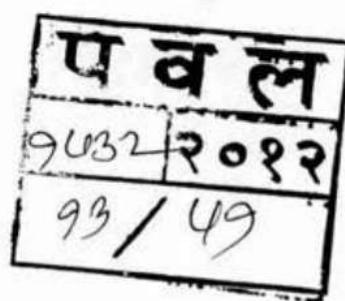 प व ल
१५३२ २०१२
१३ / ५१